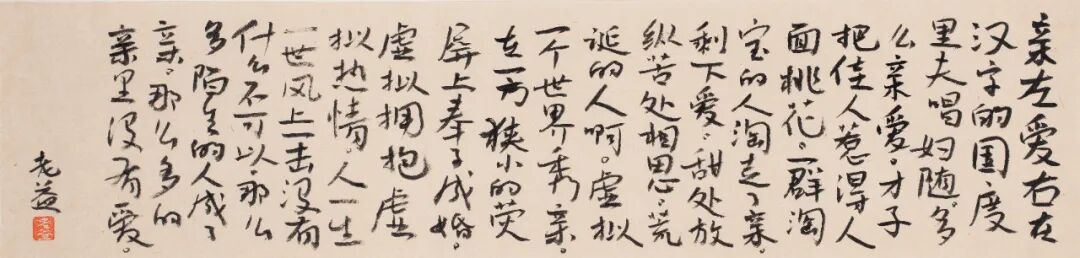 亲左爱右在
汉字的国度
里夫唱妇随。多
么亲爱。才子
把佳人惹得人
面桃花。一群淘
宝的人淘走了亲。
剩下爱。甜处放
纵苦处相思。荒
诞的人啊。虚拟
一个世界秀亲。
在一方狭小的荧
屏上奉子成婚。
虚拟拥抱虚
拟热情。人一生
一世风上一击没有
什么不可以。那么
多陌生的人成了
亲。那么多的
亲里没有爱。
老益